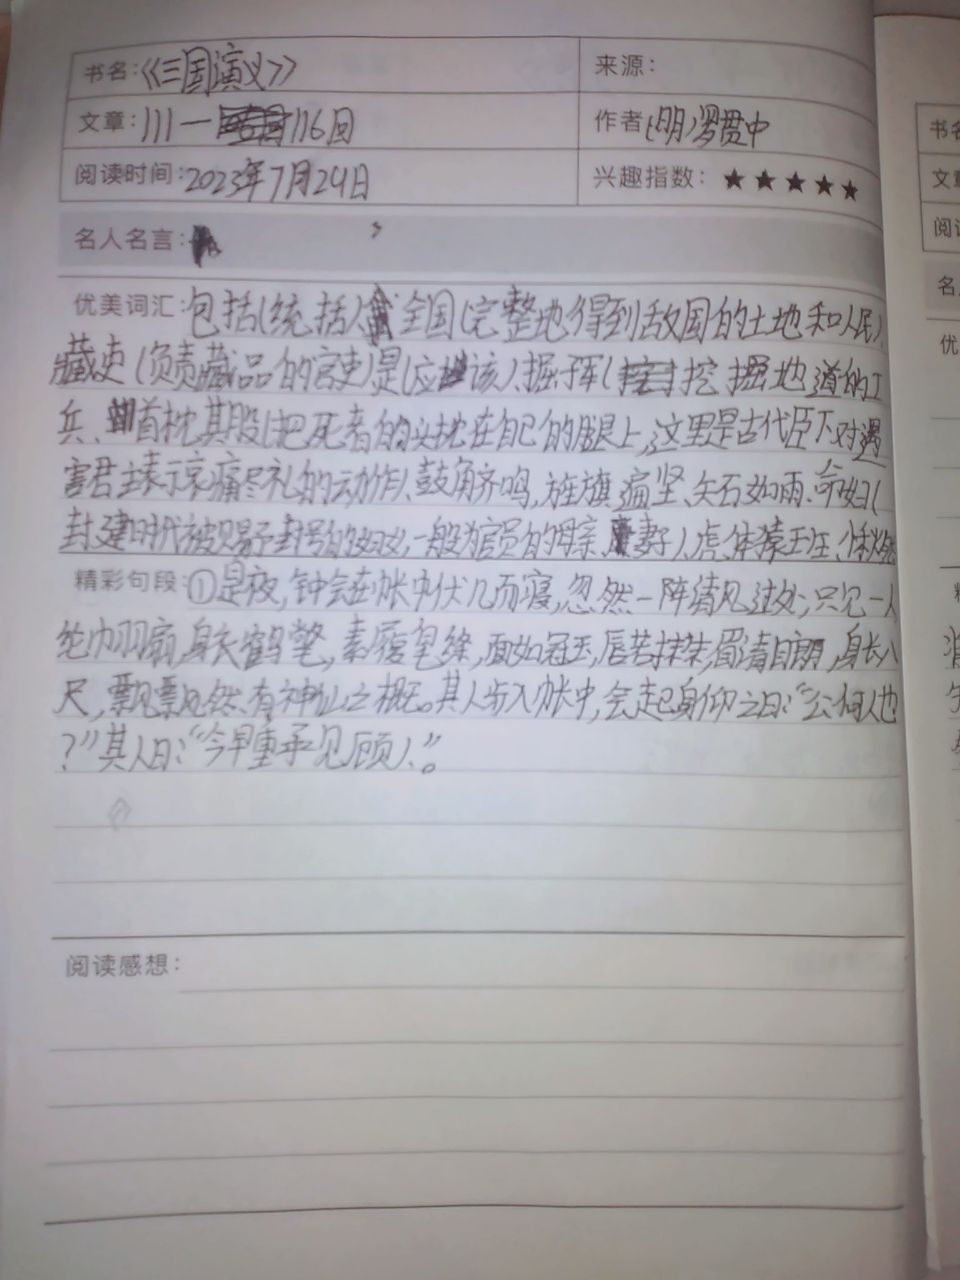 书名:《三国演义》 来源:
文章:111一116回 作者(明)罗贯中
阅读时间:2023年7月24日 兴趣指数:★★★★★
名人名言:
优美词汇:包括(统括)、全国(完整地得到敌国的土地和人民)、
藏吏(负责藏品的官吏)是(应该)、掘子军(挖掘地道的工
兵、首枕其股(把死者的头枕在自己的腿上,这里是古代臣下对遇
害君主表示哀痛尽礼的动作)、鼓角齐鸣,旌旗遍竖、矢石如雨、命妇(
封建时代被赐予封号的妇女,一般为官员的母亲、妻子)、虎体猿班、
精彩句段:①是夜,钟会在帐中伏几而寝,忽然一阵清风过处;只见一人
纶巾羽扇,身衣鹤氅,素履皂绦,面如冠玉,唇若抹朱,眉清目朗,身长八
尺,飘飘然有神仙之概。其人步入帐中,会起身仰之曰:“公何人也
?”其人曰:“今早重承见顾人.”。
阅读感想:
书名
文章
阅读
名
优